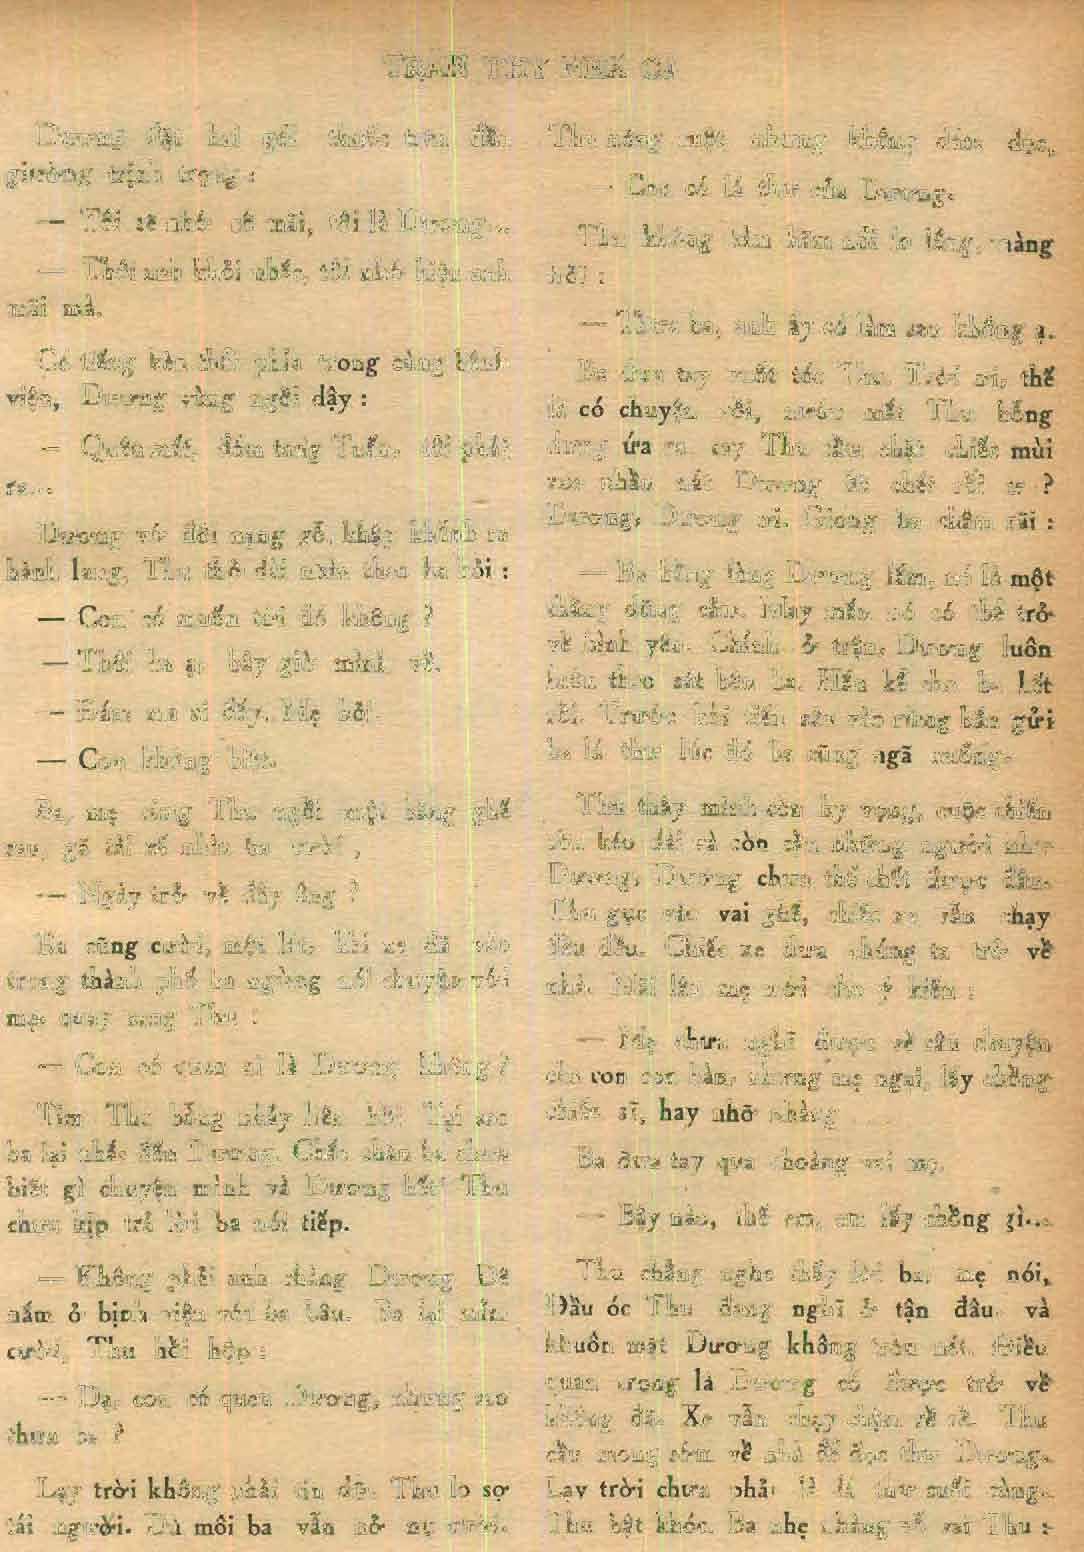 TRẦN THY NHÃ CA
Dương đặt hai gói thuốc trên đầu
giường trịnh trọng :
— Tôi sẽ nhớ cô mãi, tôi là Dương...
— Thôi anh khỏi nhắc, tôi nhớ hiện anh
mãi mà.
Có tiếng kèn thổi phía trong cùng bệnh
viện, Dương vùng ngồi dậy :
— Quên mất, đám tang Tuấn, tôi phải
ra...
Dương với đôi nạng gỗ, khập khểnh ra
hành lang, Thu thở dài nhìn theo ba hỏi :
— Con có muốn tới đó không ?
— Thôi ba ạ, bây giờ mình về.
— Đám ma ai đấy. Mẹ hỏi.
— Con không biết.
Ba, mẹ cùng Thu ngồi một băng ghế
sau, gã tài xế nhìn ba cười ,
— Ngày trở về đấy ông ?
Ba cũng cười, một lát, khi xe đã vào
trong thành phố ba ngừng nói chuyện với
mẹ, quay sang Thu :
— Con có quen ai là Dương không ?
Tim Thu bỗng nhảy lên hồi. Tại sao
ba lại nhắc đến Dương. Chắc chắn ba chưa
biết gì chuyện mình và Dương hết Thu
chưa kịp trả lời ba nói tiếp.
— Không phải anh chàng Dương
nằm ở bịnh viện với ba đâu. Ba lại mỉm
cười, Thu hồi hộp :
— Dạ, con có quen Dương, nhưng sao
thưa ba ?
Lạy trời không phải tin dữ. Thu lo sợ
tái người. Dù môi ba vẫn nở nụ cười.
Thu nóng ruột nhưng không dám đọc,
— Con có lá thư của Dương.
Thu không kìm hãm nổi lo lắng, màng
hỏi :
— Thưa ba, anh ấy có làm sao không ạ.
Ba đưa tay vuốt tóc Thu. Trời ơi, thế
là có chuyện rồi, nước mắt Thu bỗng
dưng ứa ra tay Thu cầm chặt chiếc mùi
soa nhầu nát Dương đã chết rồi ư ?
Dương, Dương ơi. Giọng ba chậm rãi :
— Ba bằng lòng Dương lắm, nó là một
thằng dũng cảm. May mắn nó có thể trở
về bình yên. Chính ở trận, Dương luôn
luôn theo sát bên ba. Hắn kể cho ba hết
rồi. Trước khi tiến sâu vào rừng hắn gửi
ba lá thư lúc đó ba cũng ngã xuống.
Thu thấy mình còn hy vọng, cuộc chiến
còn kéo dài và còn cần những người như
Dương. Dương chưa thể chết được đâu.
Thu gục vào vai ghế, chiếc xe vẫn chạy
đều đều. Chiếc xe đưa chúng ta trở về
nhà. Mãi lâu mẹ mới cho ý kiến :
— Mẹ chưa nghĩ được về câu chuyện
của con con bàn, nhưng mẹ ngại, lấy chồng
chiến sĩ, hay nhỡ nhàng
Ba đưa tay qua choàng vai mẹ.
— Bậy nào, thế em, em lấy chồng gì...
Thu chẳng nghe thấy lời ba, mẹ nói,
Đầu óc Thu đang nghĩ ở tận đâu. và
khuôn mặt Dương không tròn nét. Điều
quan trọng là Dương có được trở về
không đã. Xe vẫn chạy chậm rề rề. Thu
cầu mong sớm về nhà để đọc thư Dương.
Lạy trời chưa phải là lá thư cuối cùng.
Thu bật khóc. Ba nhẹ nhàng vỗ vai Thu :